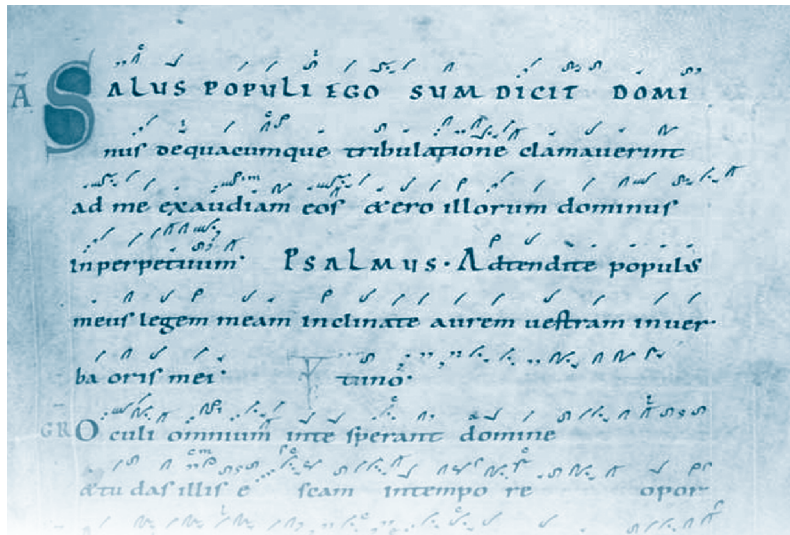 Ā SALUS POPULI EGO SUM DICIT DOMI
nus dequacumque tribulatione clamauerint
ad me exaudiam eos &ero illorum dominus
inperpetuum· PSALMUS· Adtendite populus
meus legem meam inclinate aurem uestram inuer
ba oris mei·
tuno·
GR Oculi omnium inte sperant domine
&tu das illis e scam intempo re opor